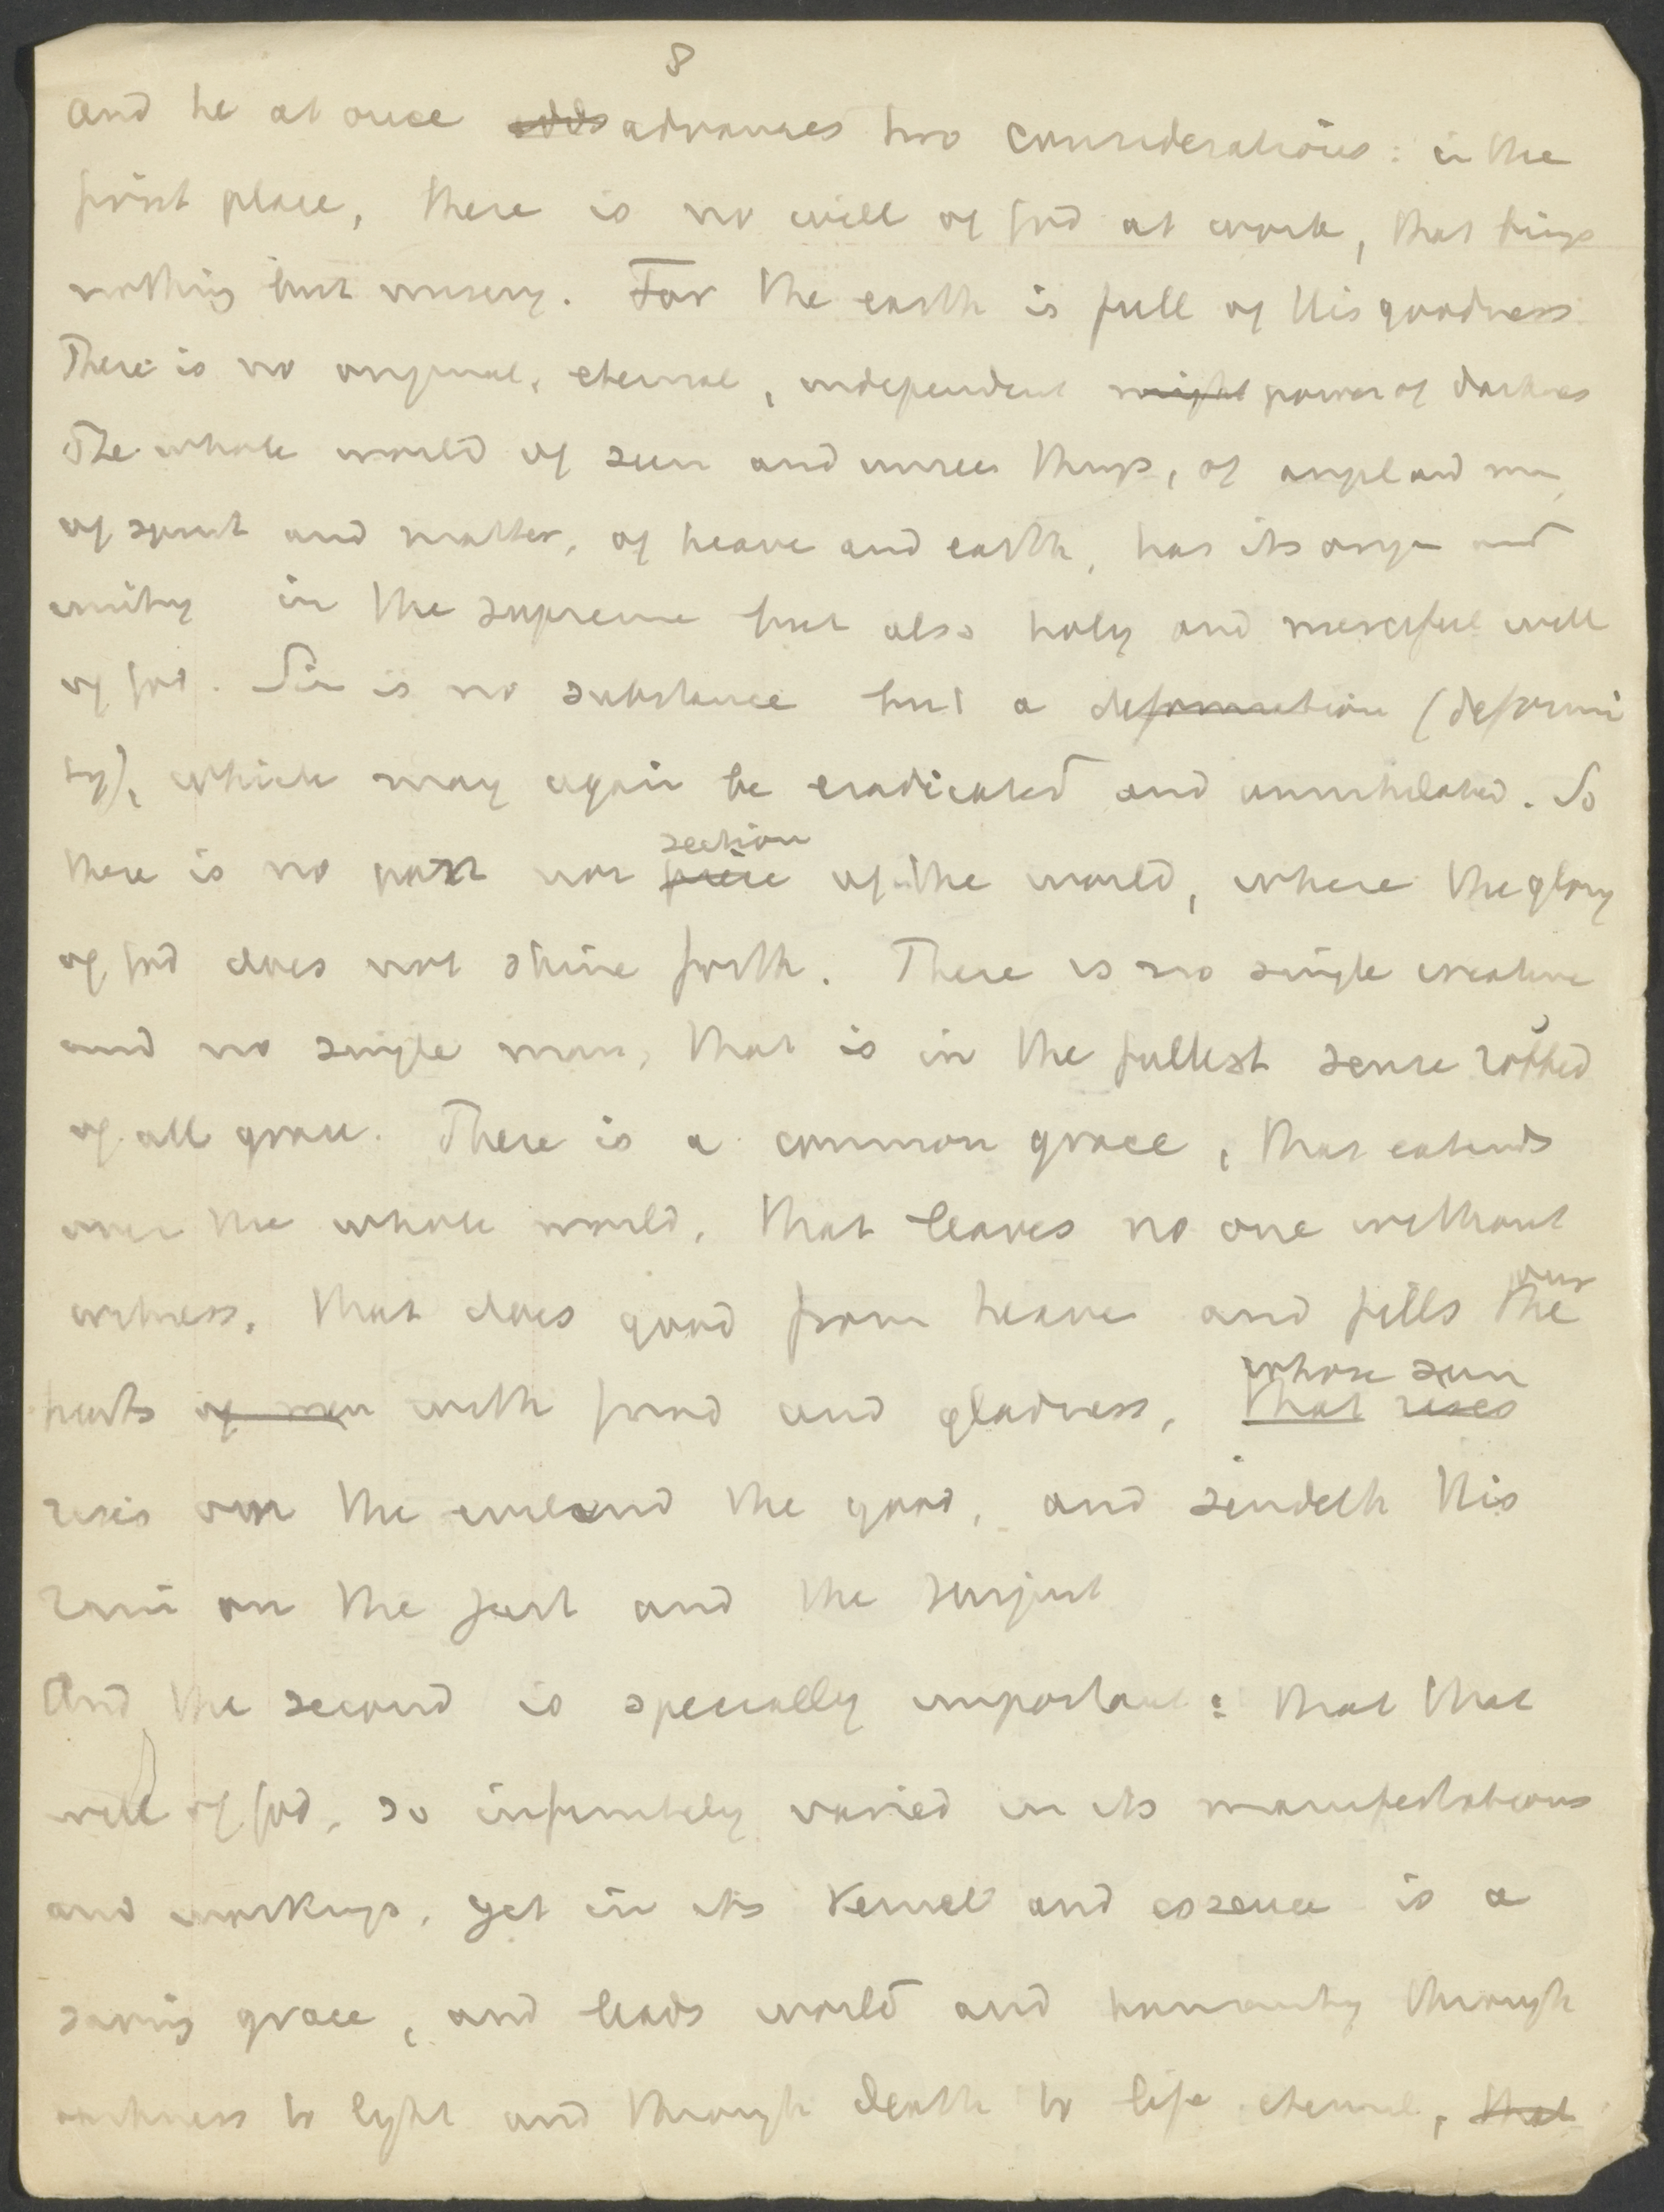 8
And he at once adds advances two considerations: in the
first place, there is no will of God at work, that brings
nothing but misery. For the earth is full of His goodness
There is no original, eternal, independent might power of darkness
The whole world of seen and unseen things, of angel and man,
of spirit and matter, of heaven and earth, has its origin and
unity in the supreme but also holy and merciful will
of God. Sin is no substance but a deformation (deformi
ty), which may again be eradicated and annihilated. So
section
there is no part nor piece of the world, where the glory
of God does not shine forth. There is no single creature
and no single man, that is in the fullest sense robbed
of all grace. There is a common grace, that extends
over the whole world, that leaves no one without
our
witness, that does good from heaven and fills the
whose sun
hearts of men with food and gladness, that rises
rises on the evil and the good, and sendeth His
rain on the just and the unjust
And the second is specially important: that that
will of God, so infinitely varied in its manifestations
and workings, yet in its kernel and essence is a
saving grace, and leads world and humanity through
darkness to light and through death to life eternal, that